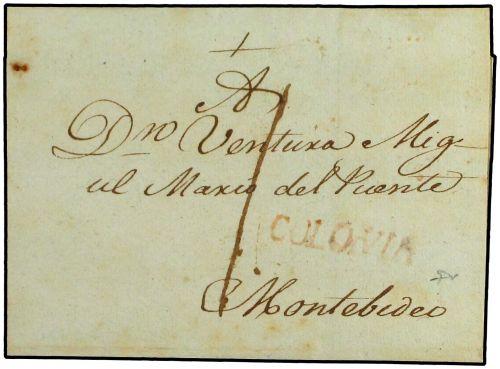 A
Dn Ventura Mig-
uel Mario del Puente
COLONIA
Montebideo